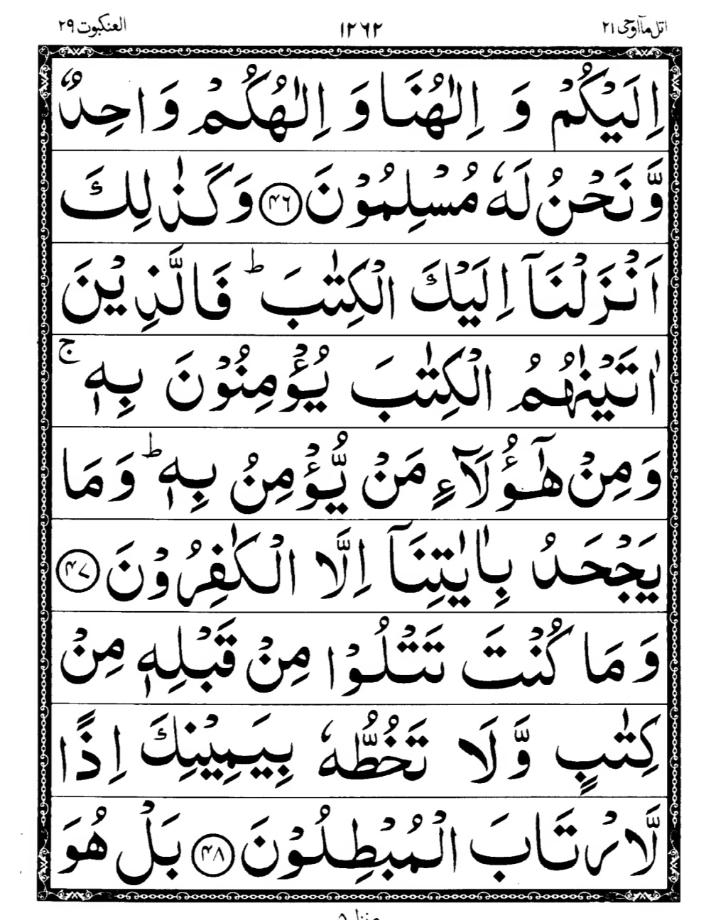 اتل ماۤ اوحی ۲۱ ۱۲۶۲ العنکبوت ۲۹
اِلَیْكُمْ وَ اِلٰهُنَا وَ اِلٰهُكُمْ وَاحِدٌ
وَّ نَحْنُ لَهٗ مُسْلِمُوْنَ ﴿۴۶﴾ وَ كَذٰلِكَ
اَنْزَلْنَاۤ اِلَیْكَ الْكِتٰبَ ؕ فَالَّذِیْنَ
اٰتَیْنٰهُمُ الْكِتٰبَ یُؤْمِنُوْنَ بِهٖ ۚ
وَ مِنْ هٰۤؤُلَآءِ مَنْ یُّؤْمِنُ بِهٖ ؕ وَ مَا
یَجْحَدُ بِاٰیٰتِنَاۤ اِلَّا الْكٰفِرُوْنَ ﴿۴۷﴾
وَ مَا كُنْتَ تَتْلُوْا مِنْ قَبْلِهٖ مِنْ
كِتٰبٍ وَّ لَا تَخُطُّهٗ بِیَمِیْنِكَ اِذًا
لَّارْتَابَ الْمُبْطِلُوْنَ ﴿۴۸﴾ بَلْ هُوَ